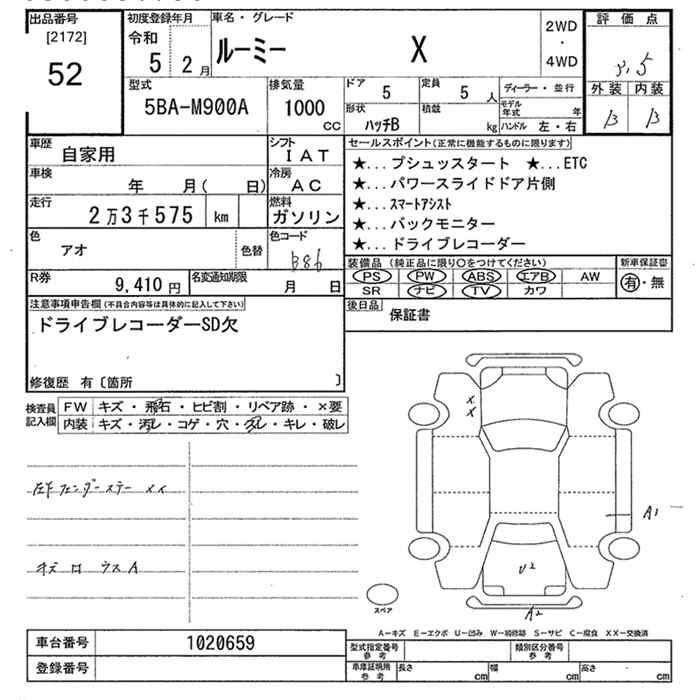 出品番号
[2172]
52
初度登録年月
令和
5年2月
車名・グレード
ルーミー X
2WD
・
4WD
評価点
3.5
外装 内装
B B
型式
5BA-M900A
排気量
1000
CC
ドア
5
定員
5 人
形状
ハッチB
積載
kg
ディーラー・並行
モデル年式 年
ハンドル 左・右
車歴
自家用
シフト
IAT
車検
年 月( 日)
冷房
AC
走行
2万3千575 km
燃料
ガソリン
色
アオ
色替
色コード
B86
R券
9,410円
名変通知期限
月 日
セールスポイント(正常に機能するものに限ります)
★...プシュッスタート ★...ETC
★...パワースライドドア片側
★...スマートアシスト
★...バックモニター
★...ドライブレコーダー
装備品(純正品に限り○をつけてください)
PS PW ABS エアB AW
SR ナビ TV カワ
新車保証書
有・無
後日品
保証書
注意事項申告欄(不具合内容等は具体的に記入して下さい)
ドライブレコーダーSD欠
修復歴 有〔箇所 〕
検査員記入欄
FW キズ・飛石・ヒビ割・リペア跡・×要
内装 キズ・汚レ・コゲ・穴・スレ・キレ・破レ
左Fフェンダーステー メイ
キズ ロ ウスA
X
X
A1
U2
A2
スペア
A-キズ E-エクボ U-凹み W-補修跡 S-サビ C-腐食 XX-交換済
車台番号 1020659
登録番号
型式指定番号 参考
類別区分番号 参考
車庫証明用 参考
長さ cm
幅 cm
高さ cm